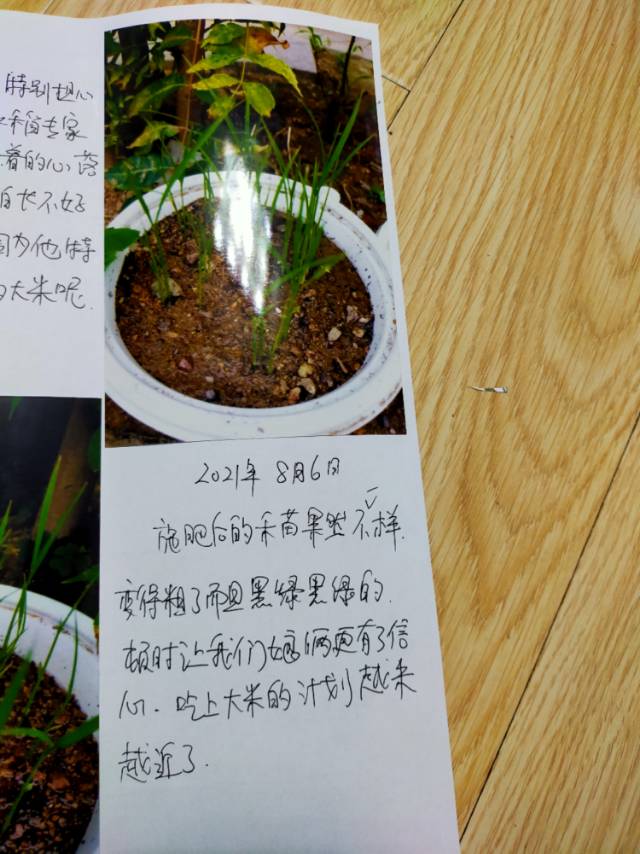 特别担心
稻专家
着的心,
长不好
因为他特
大米呢.
2021年 8月6日
施肥后的禾苗果然不一样.
变得粗了而且黑绿黑绿的.
顿时让我们娘俩更有了信
心. 吃上大米的计划越来
越近了.